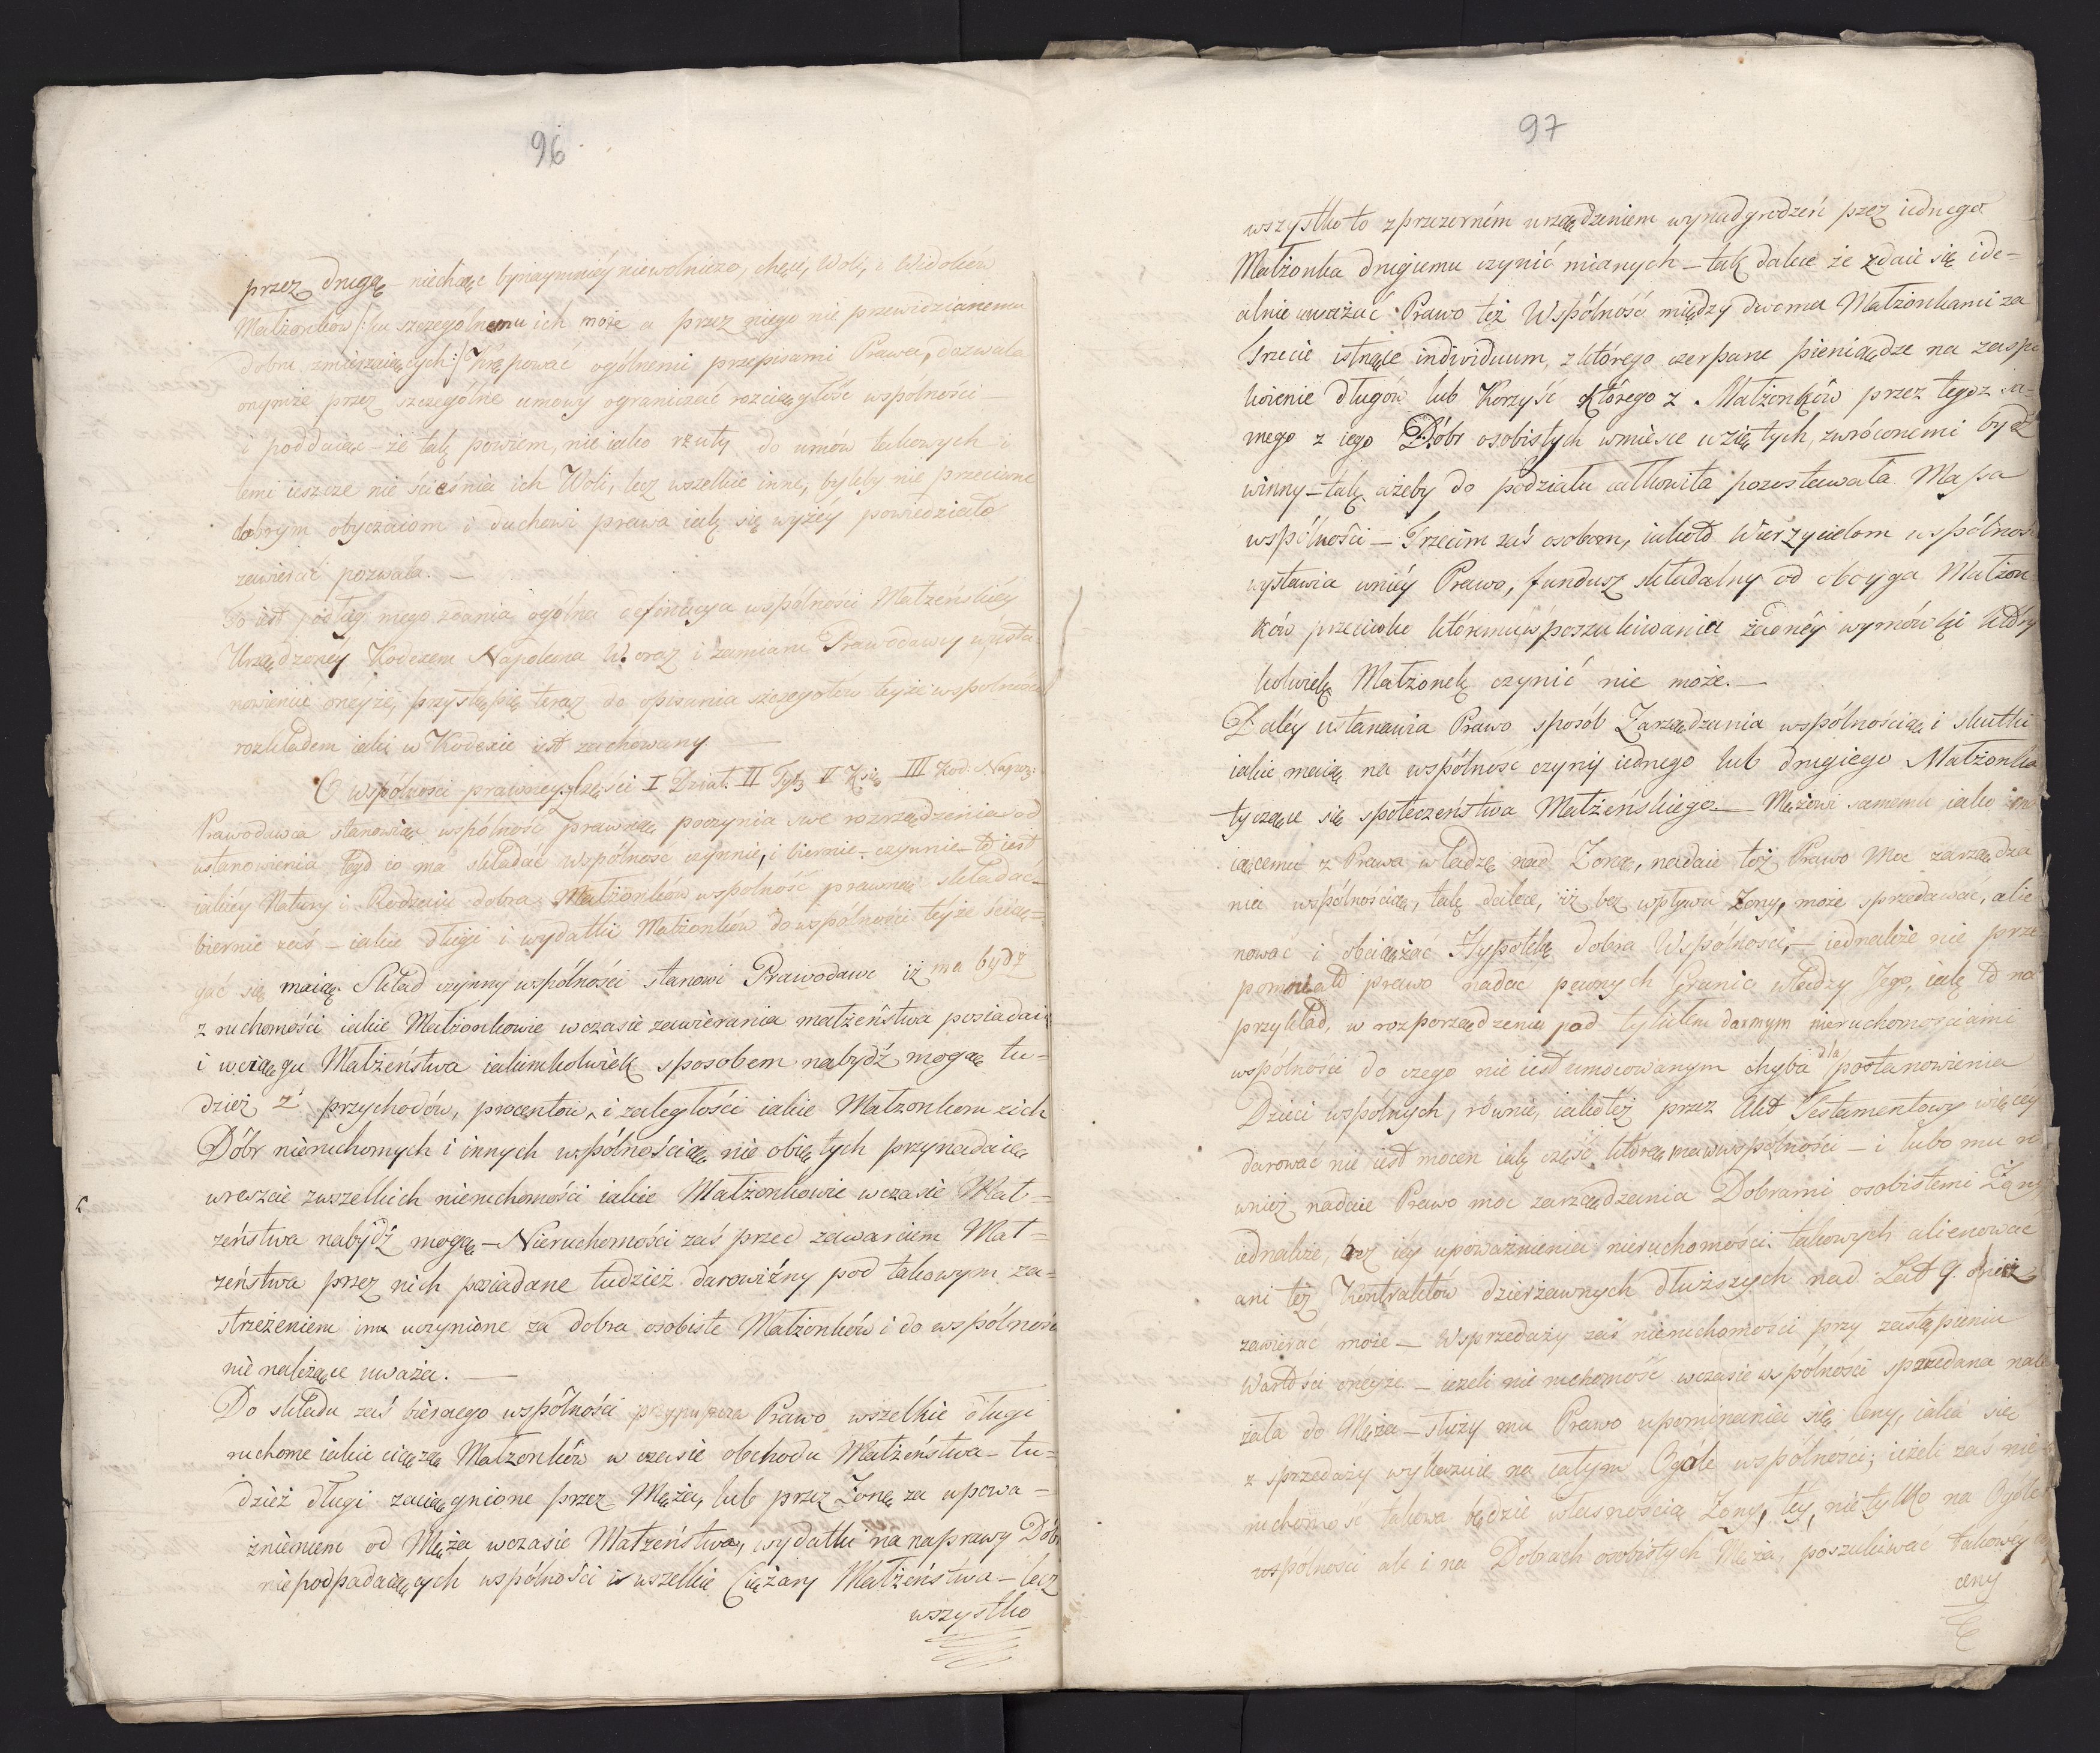 96
przez drugą – niechcąc bynaymniéy niewolniczo, chęci, Woli, i Widoków
Małżonków /:ku szczegolnemu ich może a przez niego nie przewidzianemu
dobru zmierzaiących:/ Krępować ogólnemi przepisami Prawa, dozwala
onymże przez szczególne umowy ograniczać rozciągłość wspólności –
i poddaiąc – że tak powiem, nie iako rzuty do umow takowych i
temi ieszcze nie ścieśnia ich Woli, lecz wszelkie inne, byleby nie przeciwne
dobrym obyczaiom i duchowi prawa iak się wyżéy powiedziało
zawierać pozwala. –
To iest podług mego zdania ogólna definicya wspólności Małżeńskiéy
Urządzoney Kodexem Napoleona W. oraz i zamiaru Prawodawcy w posta-
nowieniu oneyże, przystąpię teraz do opisania szczegołów teyże wspolności
rozkładem iaki w Kodexie iest zachowany –
O wspólności prawnéy. Części I Dział. II Tyt. V Xsię. III Kod: Nap:
Prawodawca stanowiąc wspólność prawną poczynia swe rozrządzenia od
ustanowienia tego co ma składać wspólność czynnie, i biernie – czynnie – to iest
iakiéy Natury i Rodzaiu dobra Małżonków wspolność prawną składać –
biernie zaś – iakie długi i wydatki Małżonków do wspólności teyże ścią=
gać się maią. Skład czynny wspólności stanowi Prawodawc iż ma bydź
z ruchomości iakie Małżonkowie w czasie zawierania małżeństwa posiadaią
i w ciągu Małżeństwa iakimkolwiek sposobem nabydź mogą tu=
dzież z przychodów, procentow, i zaległości iakie Małzonkom z ich
Dóbr nieruchomych i innych wspólnością nie obiętych przypadaią
wreszcie z wszelkich nieruchomości iakie Małżonkowie w czasie Mał=
żeństwa nabydź mogą – Nieruchomości zaś przed zawarciem Mał=
żeństwa przez nich posiadane tudzież darowizny pod takowym za=
strzeżeniem im uczynione za dobra osobiste Małżonków i do wspólności
nie należące uważa. –
Do składu zaś biernego wspólności przypuszcza Prawo wszelkie długi
ruchome iakie ciążą Małzonków w czasie obchodu Małżeństwa – tu=
dzież długi zaciągnione przez Męża, lub przez Żonę za upowa=
żnieniem od Męża w czasie Małżeństwa, wydatki na naprawy Dóbr
niepodpadaiących wspólności i wszelkie Ciężary Małżeństwa – lecz
wszystko
97
wszystko to z przezorném urządzeniem wynadgrodzeń przez iednego
Małżonka drugiemu czynić mianych – tak dalece że zdaie się ide-
alnie uważać Prawo też Wspólność między dwoma Małżonkami za
trzecie istnące individuum, z którego czerpane pieniądze na zaspo
koienie długów lub Korzyść którego z Małżonków przez tegoz sa-
mego z iego Dóbr osobistych w miesce wziętych, zwróconemi bydź
winny – tak ażeby do podziału całkowita pozostawała Massa
wspólności – Trzecim zaś osobom, iakoto Wierzycielom wspólność
wystawia w niéy Prawo, fundusz składalny od oboyga Małżon-
ków przeciwko któremu w poszukiwaniu żadnéy wymówki który
kolwiek Małżonek czynić nie może. –
Daléy ustanawia Prawo sposób Zarządzania wspólnością i skutki
iakie maią na wspólność czyny iednego lub drugiego Małżonka
tyczące się społeczeństwa Małżeńskiego. – Mężowi samemu iako ma
iącemu z Prawa władzę nad Żoną, nadaie też Prawo Moc zarządza
nia wspólnością, tak dalece, iż bez wpływu Żony, może sprzedawać, alie
nować i obciążać Hypoteką dobra Wspólności, – iednakże nie prze
pomniało prawo nadać pewnych Granic władzy Jego, iak to na
przykład, w rozporządzeniu pod tytułem darmym nieruchomościami
wspólności do czego nie iest umocowanym chyba dla postanowienia
Dzieci wspólnych, równie, iakoteż przez Akt Testamentowy więcéy
darować nie iest mocen iak część którą ma w wspólności – i lubo mu ró
wnież nadaie Prawo moc zarządzania Dobrami osobistemi Żony
iednakże, bez iéy upoważnienia nieruchomości takowych alienować
ani też Kontraktów dzierżawnych dłuższych nad Lat 9.
zawierać może – W sprzedaży zaś nieruchomości przy zastąpieniu
Wartości onéyże – ieżeli nieruchomość w czasie wspólności sprzedana nale
żała do Męża – służy mu Prawo upominania się Ceny, iaka się
z sprzedaży wykazuie na całym Ogóle wspólności; ieżeli zaś nie-
ruchomość takowa będzie własnością Żony, tey, nie tylko na Ogóle
wspolności ale i na Dobrach osobistych Męża, poszukiwać takowéy
ceny